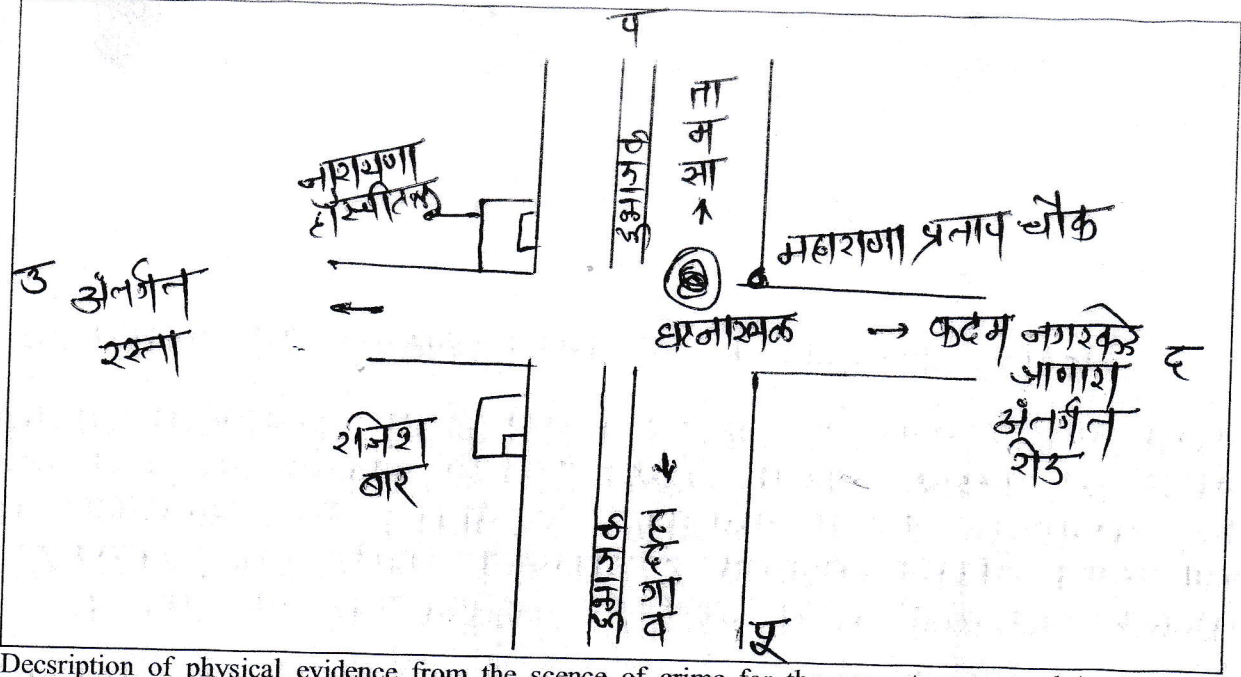 प
तामसा
दुभाजक
नारायणा
हॉस्पीतल
महाराणा प्रताप चौक
उ
अंतर्गत
रस्ता
घटनास्थळ
कदम नगरकडे
जाणारा
अंतर्गत
रोड
द
राजेश
बार
दुभाजक
हदगाव
पू
Decsription of physical evidence from the scence of crime for the